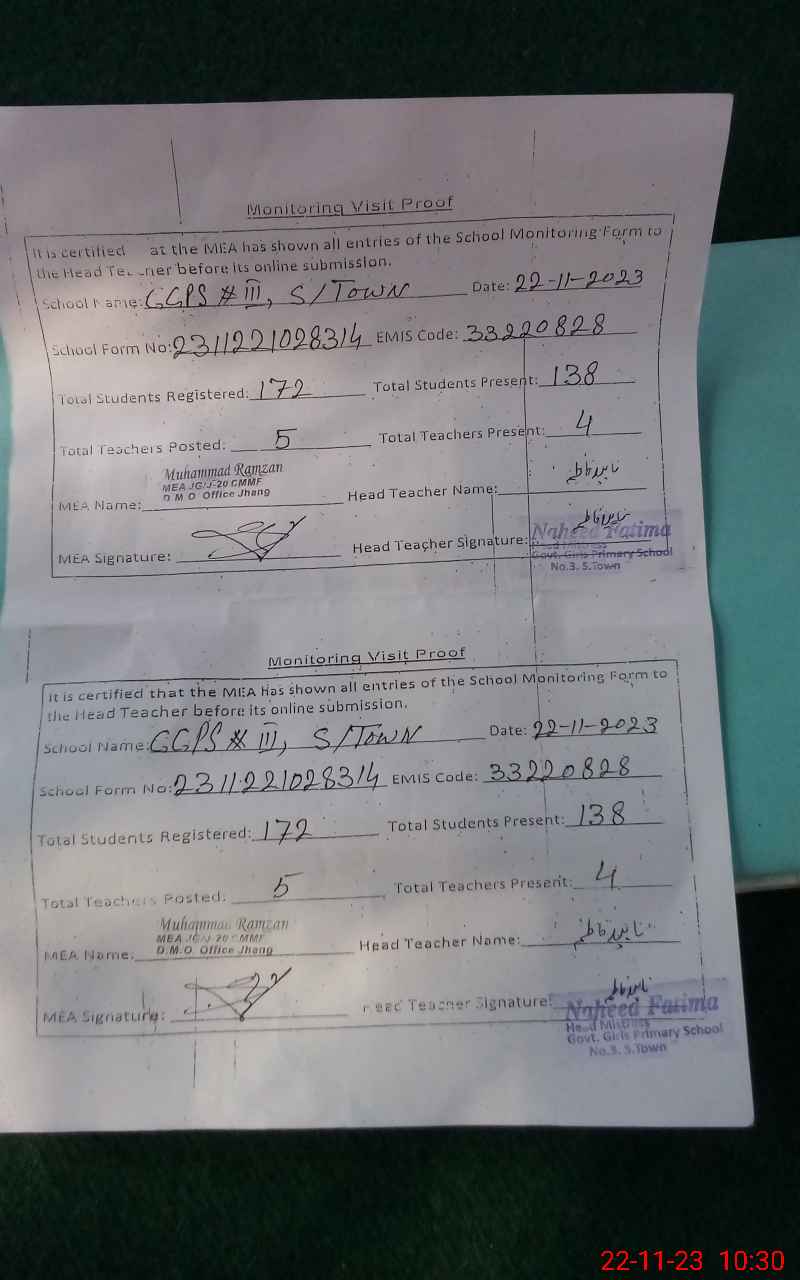 Monitoring Visit Proof
It is certified at the MEA has shown all entries of the School Monitoring Form to
the Head Te ner before its online submission.
School Name: GGPS # III, S/TOWN Date: 22-11-2023
School Form No: 2311221028314 EMIS Code: 33220828
Total Students Registered: 172 Total Students Present: 138
Total Teachers Posted: 5 Total Teachers Present: 4
Muhammad Ramzan
MEA JG/J-20 CMMF
D.M.O. Office Jhang
MEA Name: Head Teacher Name: ناہید فاطمہ
MEA Signature: Head Teacher Signature: ناہید فاطمہ
Naheed Fatima
Head Mistress
Govt. Girls Primary School
No.3. S.Town
Monitoring Visit Proof
It is certified that the MEA has shown all entries of the School Monitoring Form to
the Head Teacher before its online submission.
School Name: GGPS # III, S/TOWN Date: 22-11-2023
School Form No: 2311221028314 EMIS Code: 33220828
Total Students Registered: 172 Total Students Present: 138
Total Teachers Posted: 5 Total Teachers Present: 4
Muhammad Ramzan
MEA JG/J-20 CMMF
D.M.O. Office Jhang
MEA Name: Head Teacher Name: ناہید فاطمہ
MEA Signature: Head Teacher Signature: ناہید فاطمہ
Naheed Fatima
Head Mistress
Govt. Girls Primary School
No.3. S.Town
22-11-23 10:30